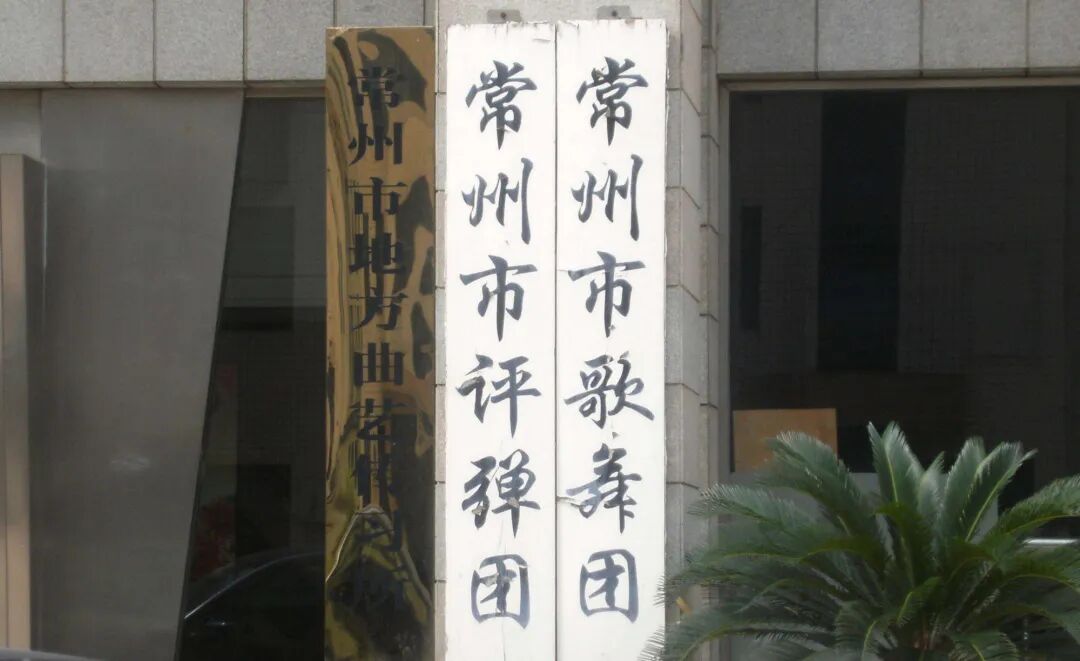 常州市地方曲艺传习所
常州市评弹团
常州市歌舞团